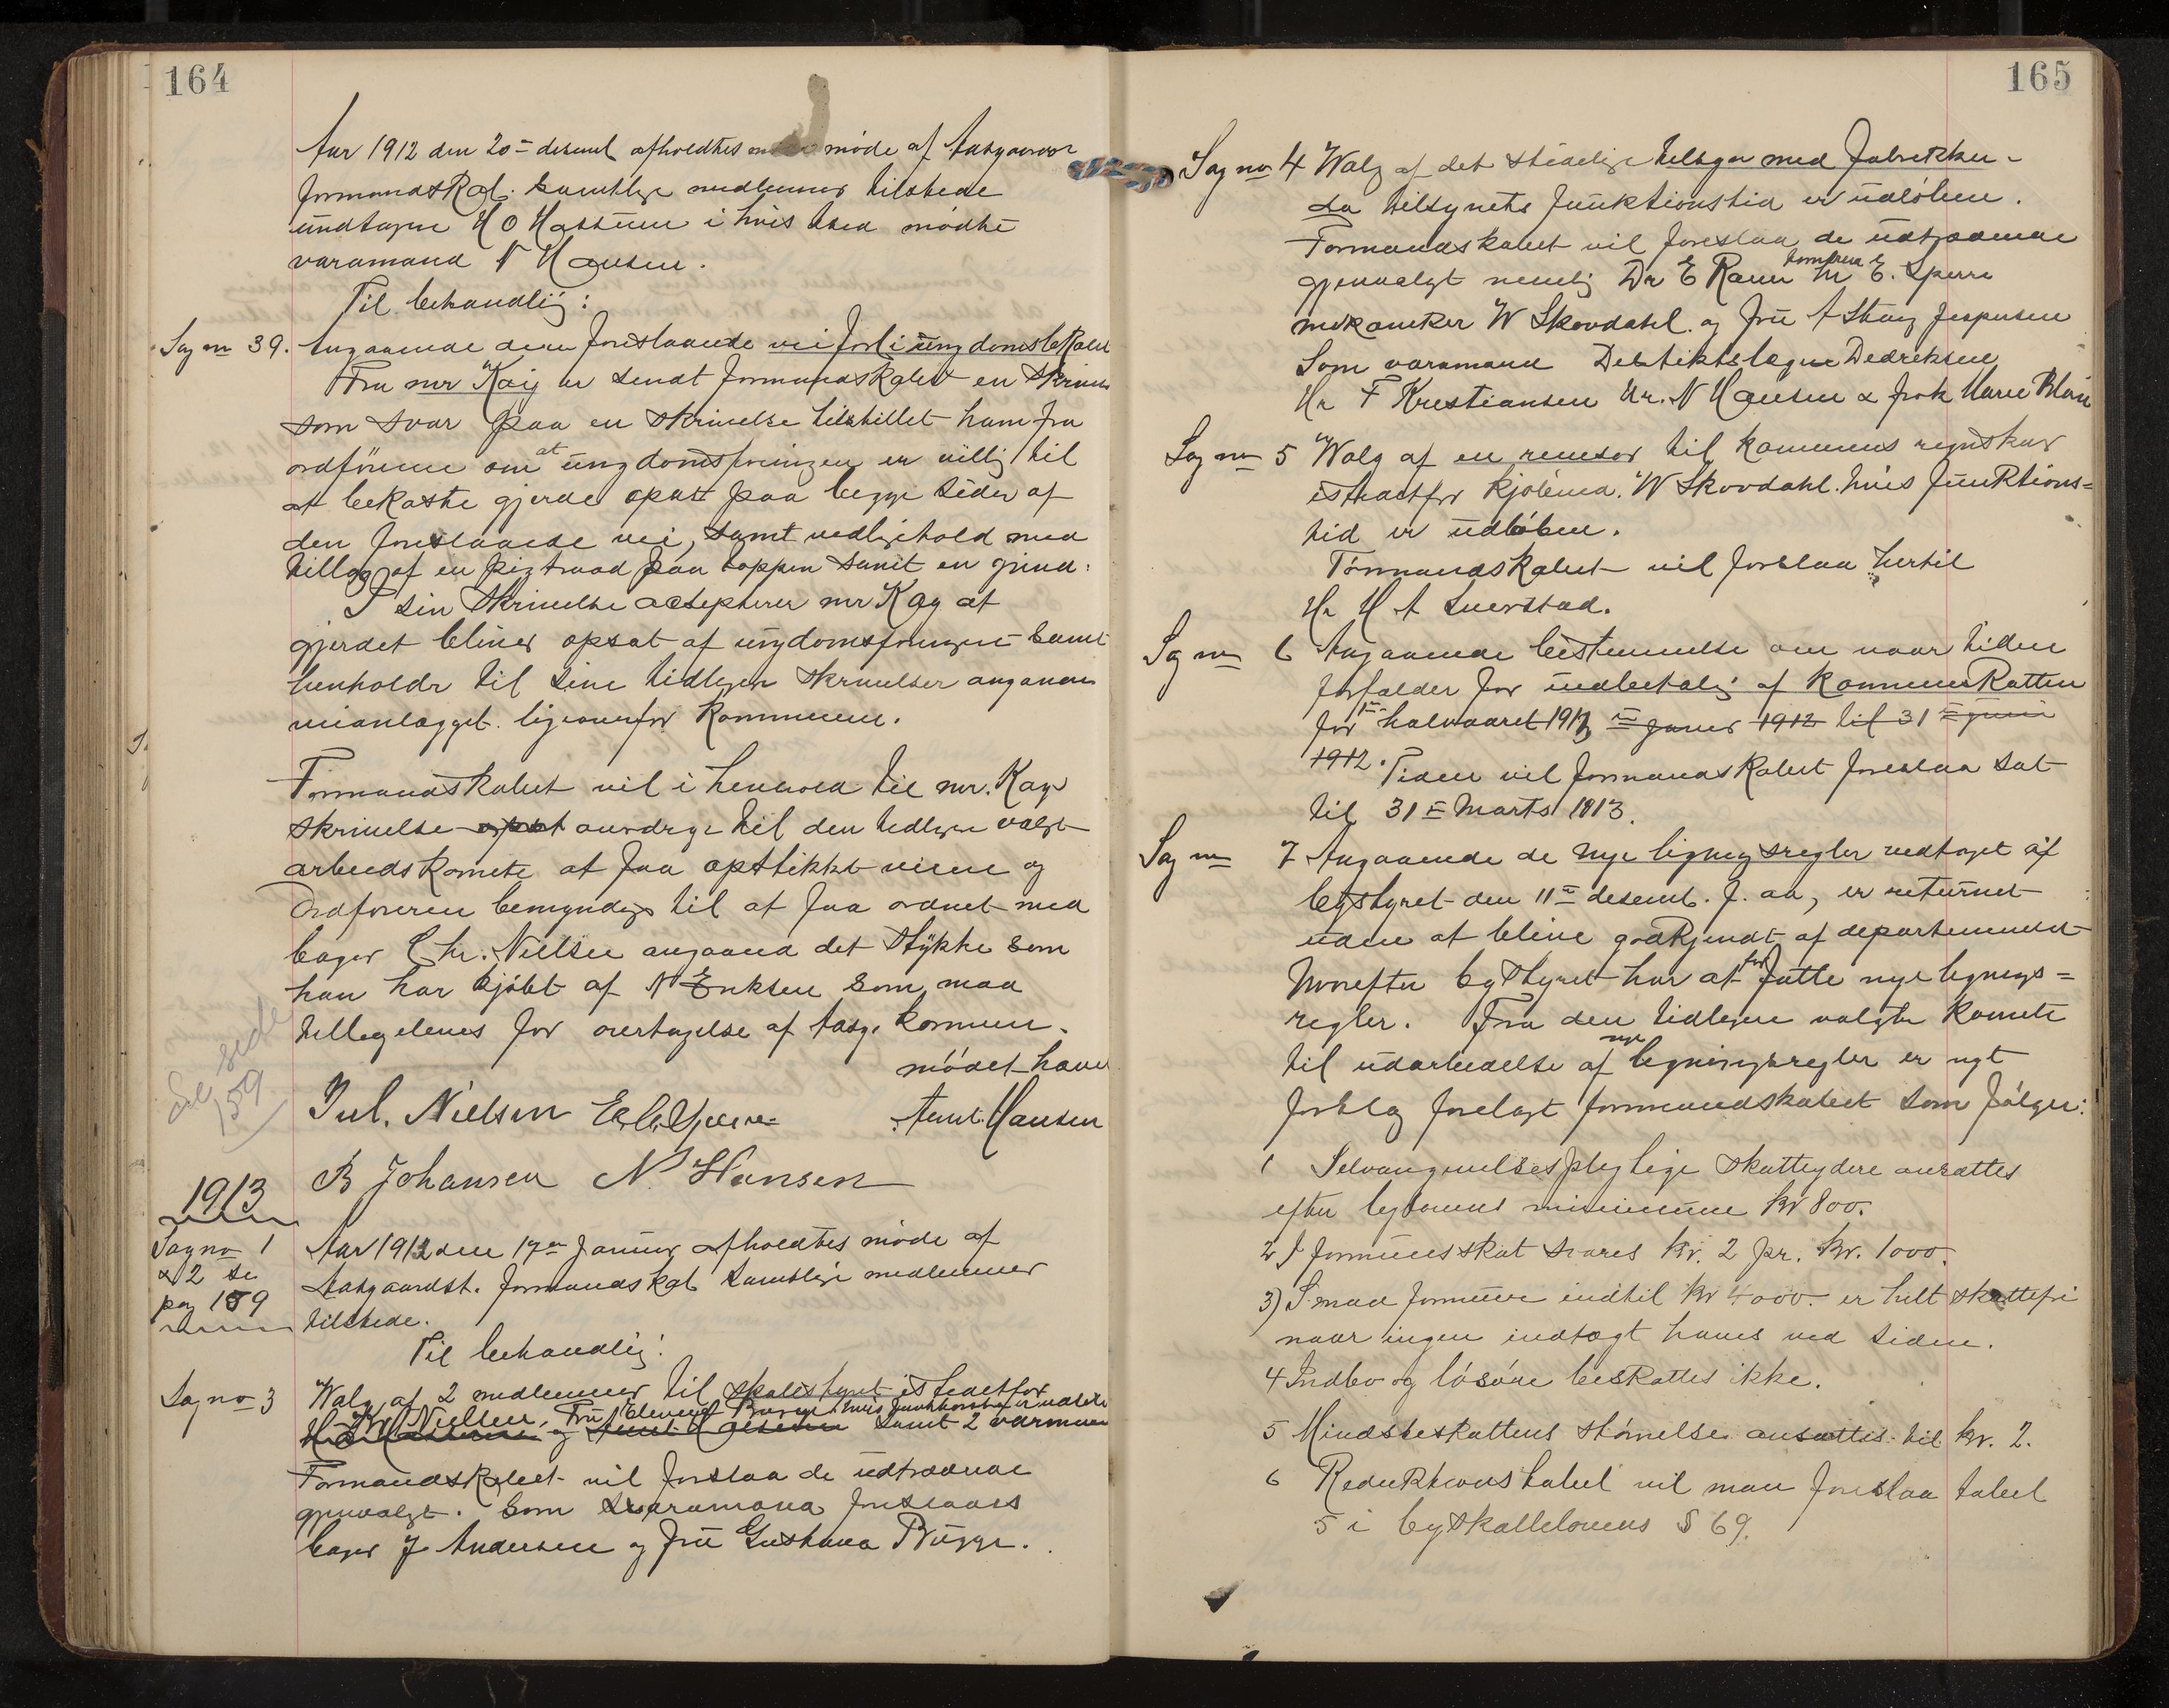 164
Aar 1912 den 20de desemb afholdtes møde af Aasgaards
formandskab. Samtlige medlemmer tilstede
undtagen H O Hassum i hvis sted mødte
varamand N Hansen.
Til behandlig:
Sag no 39. Angaaende den foreslaaede vei forbi ungdomslokalet
Fra mr Kay er sendt formandskabet en skrivels
som svar paa en skrivelse tilstillet ham fra
ordføreren om at ungdomsforeningen er villig til
at bekoste gjerde opsat paa begge sider af
den foreslaaede vei, samt vedligehold med
tillæg af en pigtraad paa toppen samt en grind.
I sin skrivelse acsepterer mr Kay at
gjerdet bliver opsat af ungdomsforeningen samt
henholdr til sine tidligere skrivelser angaaende
veianlægget ligeoverfor kommunen.
Formandskabet vil i henhold til mr. Kays
skrivelse opsat anvdrge til den tidligere valgt
arbeidskomite at faa opstikket veien og
Ordføreren bemyndiges til at faa ordnet med
bager Chr. Nielsen angaaend det stykke som
han har kjøbt af N Eriksen som maa
tillegeleves for overtagelse af Aasg. kommune.
mødet hævet
Se side
159
Jul. Nielsen Aml. Hansen
B Johansen N. Hansen
1913
Sag no 1
& 2 se
pag 159
Aar 1913 den 17de Januar afholdtes møde af
Aasgaardst. formandskab samtlige medlemmer
tilstede.
Til behandlig:
Sag no 3 Walg af 2 medlemmer til skolestyret istedetfor
Kr Nielsen, Fru Bugge hvis funktionstid er udløbe
H O Hassum og Aml. Hansen samt 2 varmænd
Formandskabet vil forslaa de udtrædende
gjenvalgt. Som varamænd foreslaaes
bager J Andersen og fru Gustava Bugge.
165
Sag no 4 Walg af det stedlige tilsyn med fabrikker
da tilsynets funktionstid er udløben.
Formandskabet vil foreslaa de udtrædende
gjenvalgt nemlig Dr E Ravn Hr E. Sperre
mekaniker W Skovdahl og fru A Stang Jespersen
Som varamænd Distiktslæge Dedreksen
Hr F Kristiansen Hr. N Hansen & frøk Marie Blom
Sag no 5 Walg af en revisor til kommuns regnskab
istedetfor kjøbmd. W Skovdahl hvis funktions=
tid er udløben.
Formandskabet vil forslaa hertil
Hr H A Sverstad.
Sag no 6 Angaaende bestemmelse om naar tiden
forfalder for indbetalig af kommuneskatten
for 1ste halvaaret 1913 Januar 1912 til 31te juni
1912. Tiden vil formandskabet foreslaa sat
til 31te Marts 1913.
Sag no 7 Angaaende de nye ligningsregler vedtaget af
bystyret den 11te desemb. f. aa, er returnet
uden at blive godkjendt af departementet
hvorefter bystyret har at fatte nye lignings=
regler. Fra den tidligere valgte komite
til udarbeidelse af nye ligningsregler er nyt
forslag forelagt formandskabet som følger:
1 Selvangivelsespligtige skatteydere ansættes
efter bylovens minimum kr 800.
2 I formuesskat svares kr. 2 pr. kr. 1000.
3) Smaa formuer indtil kr 4000. er helt skattefri
naar ingen indtægt haves ved siden.
4 Indbo og løsøre beskattes ikke.
5 Mindsteskattens størrelse ansættes til kr. 2.
6 Reduktionstabel vil man foreslaa tabel
5 i byskattelovens § 69.